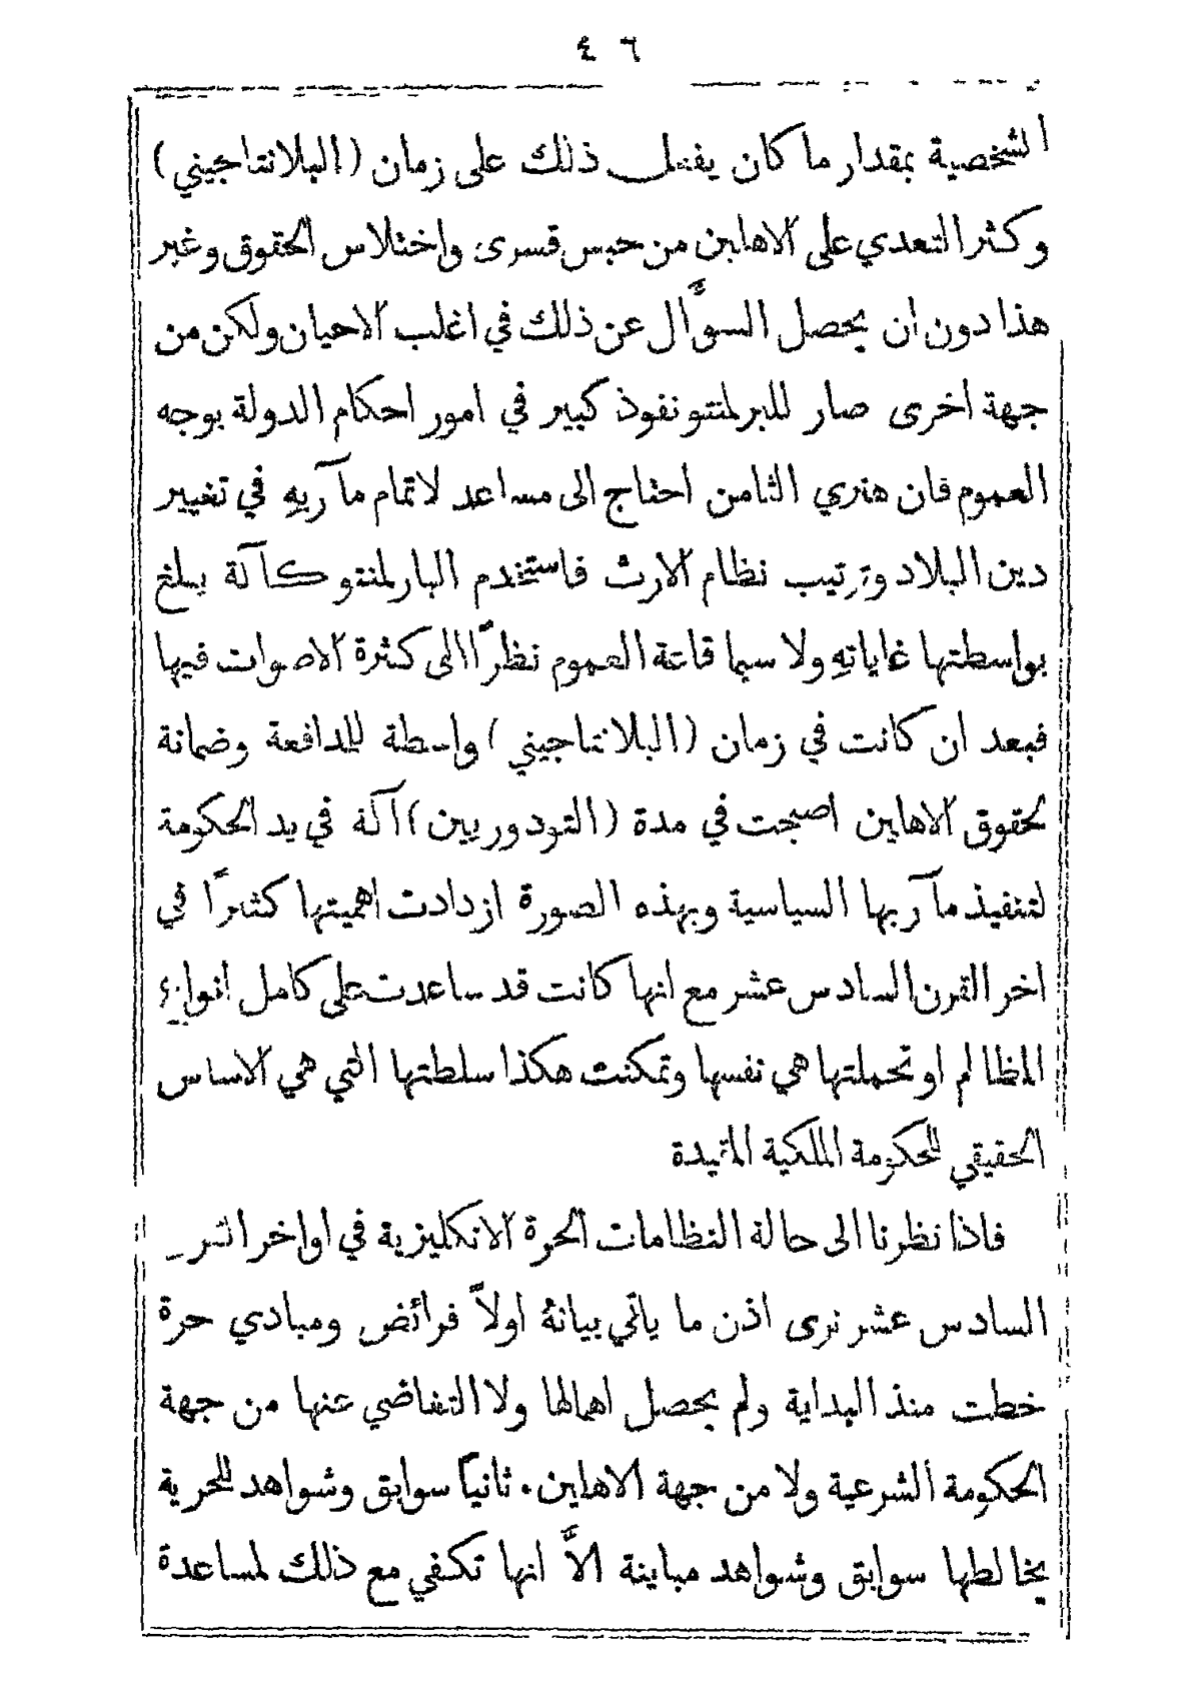 ٤٦
الشخصية بمقدار ما كان يفعل ذلك على زمان (البلانتاجيني)
وكثر التعدي على الاهلين من حبس قسرى واختلاس الحقوق وغير
هذا دون ان يحصل السوَّال عن ذلك في اغلب الاحيان ولكن من
جهة اخرى صار للبرلمنتو نفوذ كبير في امور احكام الدولة بوجه
العموم فان هنري الثامن احتاج الى مساعد لاتمام مآربهِ في تغيير
دين البلاد وترتيب نظام الارث فاستخدم البارلمنتو كآلة يبلغ
بواسطتها غاياتهِ ولا سيما قاعة العموم نظرًا الى كثرة الاصوات فيها
فبعد ان كانت في زمان (البلانتاجيني) واسطة للدافعة وضمانة
لحقوق الاهلين اصبحت في مدة (التودوريين) آلة في يد الحكومة
لتنفيذ مآربها السياسية وبهذه الصورة ازدادت اهميتها كثيرًا في
اخر القرن السادس عشر مع انها كانت قد ساعدت على كامل انواع
المظالم او تحملتها هي نفسها وتمكنت هكذا سلطتها التي هي الاساس
الحقيقي للحكومة الملكية المقيدة
فاذا نظرنا الى حالة النظامات الحرة الانكليزية في اواخر
السادس عشر نرى اذن ما ياتي بيانهُ اولاً فرائض ومبادي حرة
خطت منذ البداية ولم يحصل اهمالها ولا التغاضي عنها من جهة
الحكومة الشرعية ولا من جهة الاهلين. ثانياً سوابق وشواهد للحرية
يخالطها سوابق وشواهد مباينة الاَّ انها تكفي مع ذلك لمساعدة